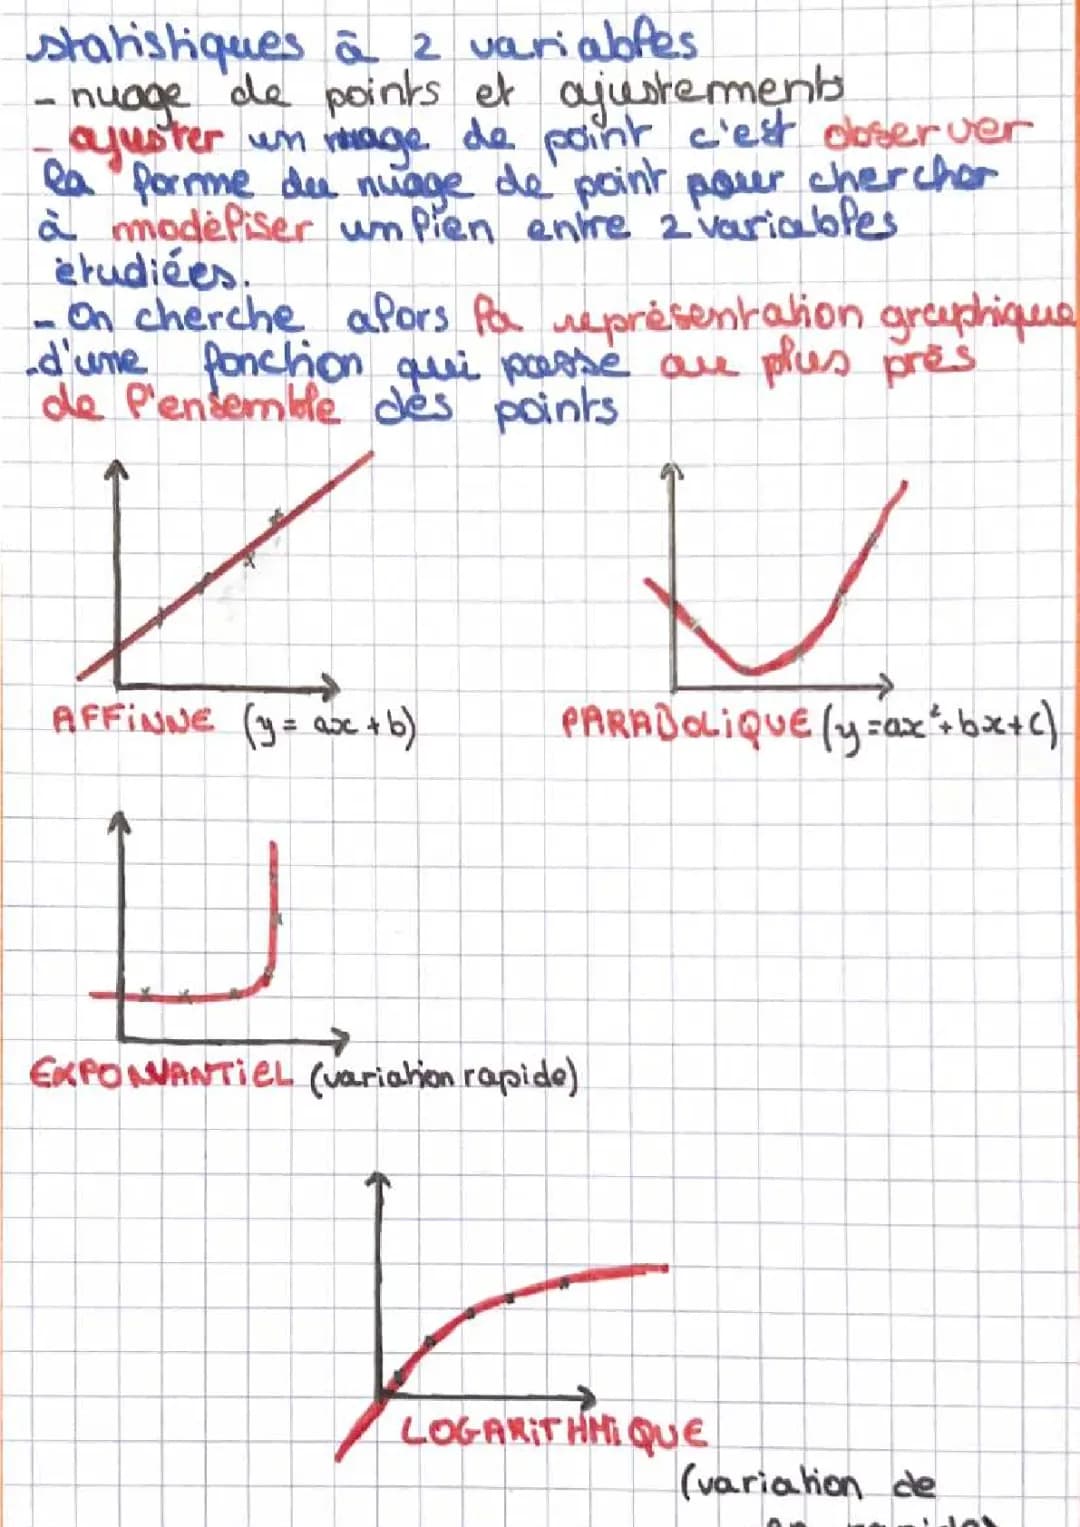 statistiques à 2 variables
- nuage de points et ajustements
- ajuster un nuage de point c'est observer
la forme du nuage de point pour chercher
à modéliser un lien entre 2 variables
étudiées.
- On cherche alors la représentation graphique
d'une fonction qui passe au plus près
de l'ensemble des points
AFFiNNE (y = ax + b)
PARABOLiQUE (y = ax² + bx + c)
EXPONNANTiEL (variation rapide)
LOGARiTHMiQUE
(variation de